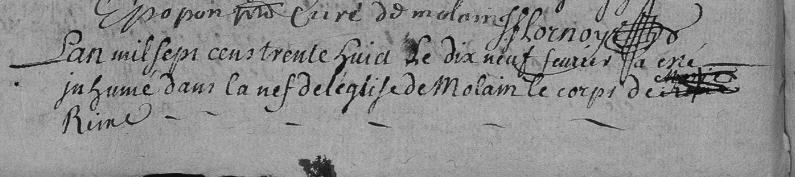 Curé de molain Hornoy
Lan mil sept cens trente huict Le dix neuf fevrier a esté
jnhumé dans la nef de léglise de Molain le corps de
Reine